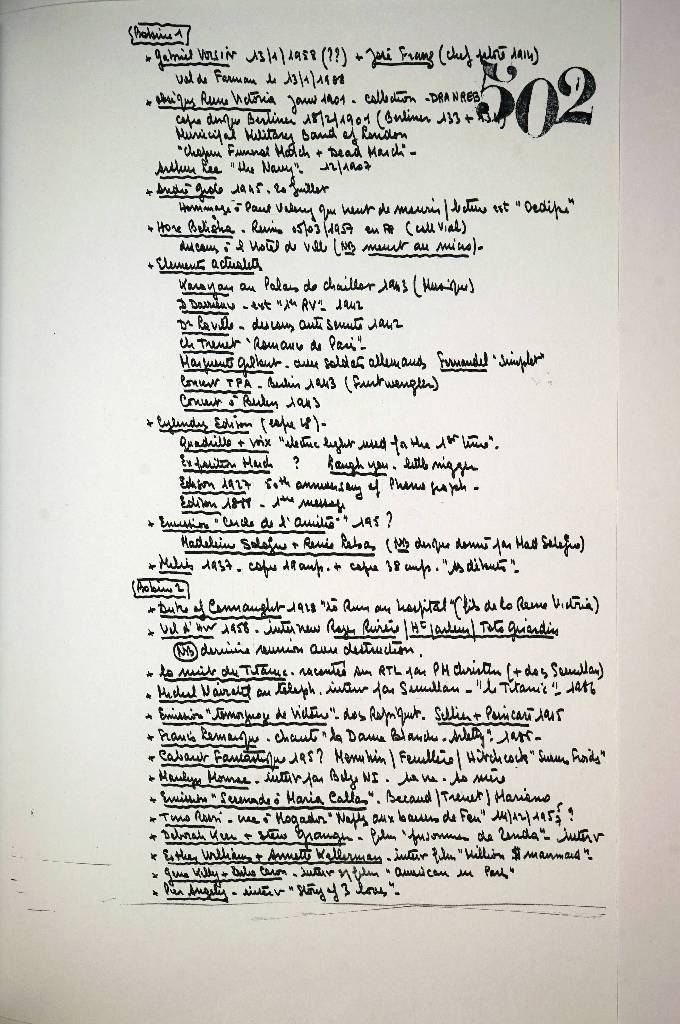 Bobine 1
* Gabriel Voisin 13/1/1958 (??) + José Franz (chef pilote 1914)
vol de Farman le 13/1/1908
502
* disque Reine Victoria 1901 - collection - DRANREB
copie disque Berliner 18/2/1901 (Berliner 133 +
Municipal Military Band of London
"Chopin Funeral March + Dead March" -
Arthur Lee "the Navy" 12/1907
* André Gide 1945. 20 Juillet
Hommage à Paul Valery qui vient de mourir / lecture ext "Oedipe"
* Hore Belisha - 05/03/1957 en FR (coll Vial)
discours à l'Hotel de Ville (NB meurt au micro) -
* Elements actualités
Karajan au Palais de chaillot 1943 (Musique)
D Darrieux - ext "1er RV" 1942
Dr - discours anti 1942
Ch Trenet "Romance de Paris" -
Marguerite Gilbert - avec soldats allemands Fernandel "simplet"
Concert TPA - Berlin 1943 (Furtwengler)
Concert à Berlin 1943
* Cylindres Edison (copie 78) -
Quadrille + voix "electric light used for the 1st time".
Exposition March ? Laugh you - little nigger
Edison 1927 50th anniversary of Phonograph -
Edison 1888 - 1er message
* Emission "Cercle de l'amitié" 195 ?
Madeleine Sologne + Renée Lebas (NB disque donné par Mad Sologne)
* 1937 - copie 19 + copie 38 "Les débuts" -
Bobine 2
* Duke of Connaught 1928 "to Run an hospital" (fils de la Reine Victoria)
* Vel d'Hiv 1958 - interview Roger Rivière / / Toto Gérardin
NB dernière réunion avant destruction.
* la nuit du Titanic - racontée sur RTL par PM Christin (+ dos Semullan)
* Michel Navratil au téléph. interv par Semullan - "le Titanic" - 1986
* Emission "témoignage de Victoire" - dos Refriguet. Sellier + Poincaré 1915
* Francis Lemarque - chante "la Dame Blanche - Arletty" 1985 -
* Cabaret Fantastique 195? Menuhin / Feuillère / Hitchcock "Sueurs Froides"
* Marilyn Monroe - interv par Belge NI - sa vie - sa mère
* Emission "Serenade à Maria Callas". Becaud / Trenet / Mariano
* Tino Rossi - à Mogador "Naples aux baisers de Feu" 14/12/1957 ?
* Deborah Kerr + Stew Granger - film "prisonnier de Zenda" - interv
* Esther Williams + Annette Kellerman - interv film "Million $ mermaid" -
* Gene Kelly + Leslie Caron - interv s/ film "American in Paris"
* Pier Angeli - interv "Story of 3 loves" -